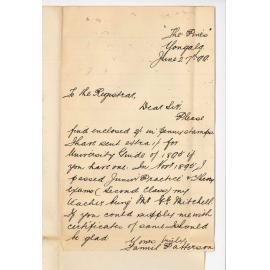 "The Pines"
Yongala
June 27th 90
To the Registrar,
Dear Sir,
Please
find enclosed in penny stamps
I have sent extra for
University Guide of 1890 if
you have one. In Nov 1890, I
passed Junior Practice & Theory
exams (Second Class) my
teacher being Mr G. Mitchell
If you could supply me with
certificates of same I should
be glad
Yours truly
Samuel Patterson